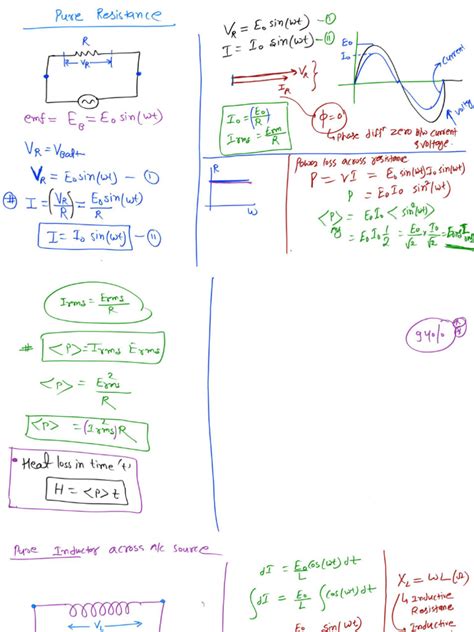 Pure Resistance
R
V_R
emf = E_B = E₀ sin(ωt)
V_R = V_Batt
V_R = E₀ sin(ωt) - ①
# I = (V_R/R) = E₀ sin(ωt)/R
I = I₀ sin(ωt) - ⑪
V_R = E₀ sin(ωt) - ①
I = I₀ sin(ωt) - ⑪
V_R
I_R
I₀ = (E₀/R)
Irms = Erm/R
ϕ = 0
Phase diff zero b/w current & voltage.
E₀
I₀
current
voltage
R
ω
Power loss across resistance
P = VI = E₀ sin(ωt) I₀ sin(ωt)
P = E₀I₀ sin²(ωt)
<P> = E₀I₀ <sin²(ωt)>
= E₀I₀ 1/2 = E₀/√2 × I₀/√2 =
Irms = Erms/R
# <P> = Irms Erms
<P> = Erms²/R
<P> = (Irms²)R
• Heat loss in time 't'
H = <P> t
94%
Pure Inductor across A/c source
V_L
dI = E₀/L cos(ωt) dt
∫dI = E₀/L ∫cos(ωt) dt
E₀ sin(ωt)
X_L = ωL (Ω)
↳ Inductive
Resistance
↳ Inductive